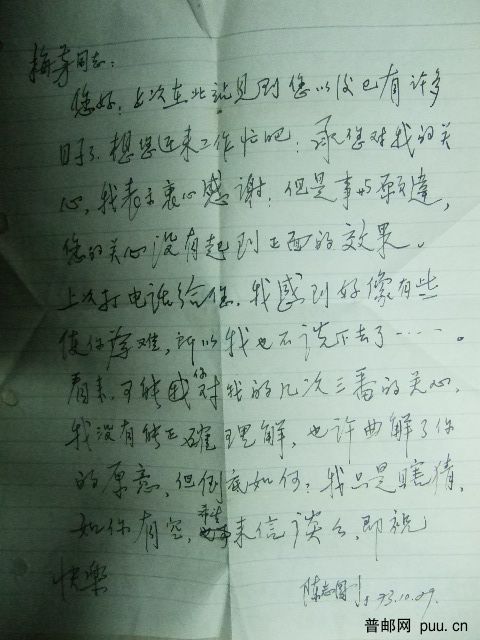 梅芳同志：
您好！上次在北站見到您以後已有许多
日子了，想您近来工作忙吧！承您对我的关
心，我表示衷心感谢！但是事与願違，
您的关心没有起到正面的效果。
上次打电话给您，我感到好像有些
使你為难，所以我也不谈下去了……。
看来，可能因你对我的几次三番的关心，
我没有能正確理解，也许曲解了你
的原意，但倒底如何？我只是瞎猜，
如你有空，来信谈谈，即祝
快樂
陈志 93.10.29.
普邮网 puu.cn